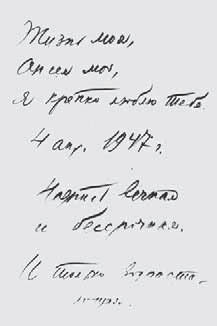 Жизнь моя,
Ансел мой,
Я крепко люблю тебя.
4 апр. 1947 г.
Надпись вечная
и бессрочная.
И только возраста-
ющая.